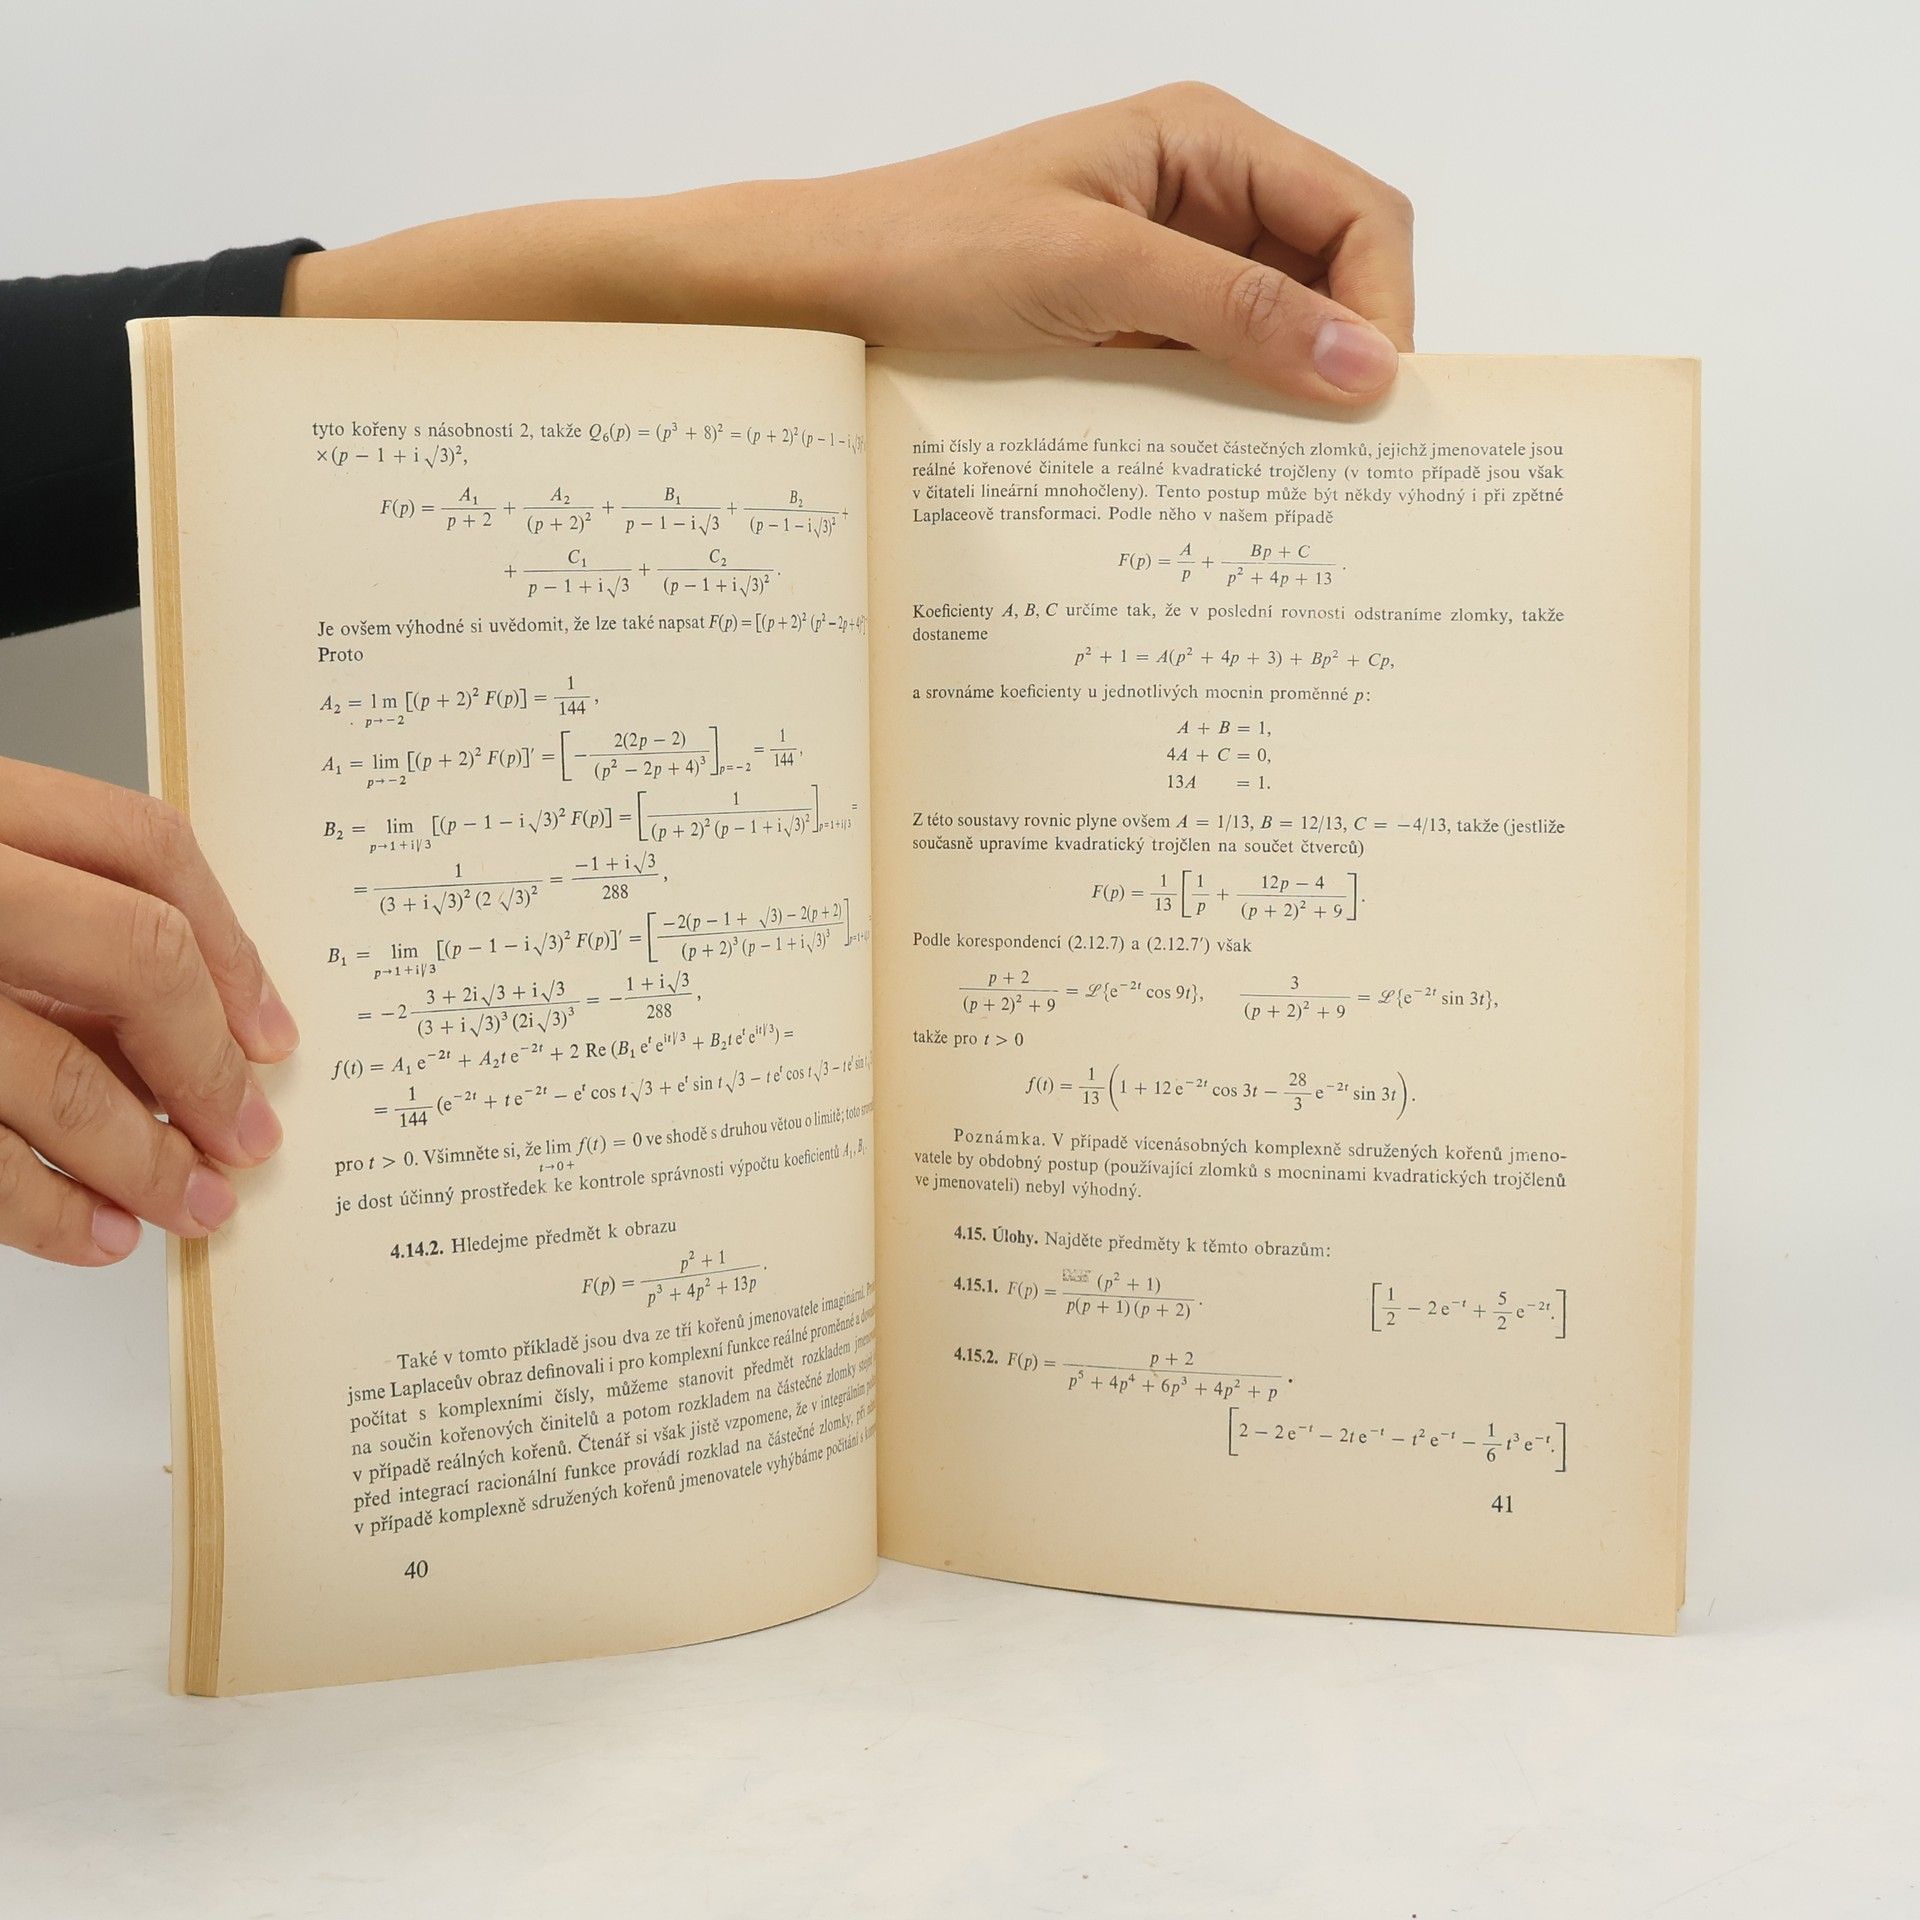 tyto kořeny s násobností 2, takže Q₆(p) = (p³ + 8)² = (p + 2)² (p − 1 − i√3)²
× (p − 1 + i√3)²,
F(p) = A₁/(p + 2) + A₂/(p + 2)² + B₁/(p − 1 − i√3) + B₂/(p − 1 − i√3)² +
+ C₁/(p − 1 + i√3) + C₂/(p − 1 + i√3)².
Je ovšem výhodné si uvědomit, že lze také napsat F(p) = [(p + 2)² (p² − 2p + 4)²]
Proto
A₂ = l m [(p + 2)² F(p)] = 1/144,
p→−2
A₁ = lim [(p + 2)² F(p)]′ = [− 2(2p − 2)/(p² − 2p + 4)³]p=−2 = 1/144,
p→−2
B₂ = lim [(p − 1 − i√3)² F(p)] = [1/((p + 2)² (p − 1 + i√3)²)]p=1+i√3 =
p→1+i√3
= 1/((3 + i√3)² (2 √3)²) = (−1 + i√3)/288,
B₁ = lim [(p − 1 − i√3)² F(p)]′ = [(−2(p − 1 + √3) − 2(p + 2))/((p + 2)³ (p − 1 + i√3)³)]p=1+i√3 =
p→1+i√3
= −2 (3 + 2i√3 + i√3)/((3 + i√3)³ (2i√3)³) = − (1 + i√3)/288,
f(t) = A₁ e⁻²ᵗ + A₂t e⁻²ᵗ + 2 Re (B₁ eᵗ e^{it√3} + B₂t eᵗ e^{it√3}) =
= 1/144 (e⁻²ᵗ + t e⁻²ᵗ − eᵗ cos t√3 + eᵗ sin t√3 − t eᵗ cos t√3 − t eᵗ sin t√3
pro t > 0. Všimněte si, že lim f(t) = 0 ve shodě s druhou větou o limitě; toto
t→0+
je dost účinný prostředek ke kontrole správnosti výpočtu koeficientů A₁, B₁.
4.14.2. Hledejme předmět k obrazu
F(p) = (p² + 1)/(p³ + 4p² + 13p).
Také v tomto příkladě jsou dva ze tří kořenů jmenovatele imaginární.
jsme Laplaceův obraz definovali i pro komplexní funkce reálné proměnné a
počítat s komplexními čísly, můžeme stanovit předmět rozkladem
na součin kořenových činitelů a potom rozkladem na částečné zlomky
v případě reálných kořenů. Čtenář si však jistě vzpomene, že v integrálním
před integrací racionální funkce provádí rozklad na částečné zlomky, při
v případě komplexně sdružených kořenů jmenovatele vyhýbáme počítání s
40
ními čísly a rozkládáme funkci na součet částečných zlomků, jejichž jmenovatele jsou
reálné kořenové činitele a reálné kvadratické trojčleny (v tomto případě jsou však
v čitateli lineární mnohočleny). Tento postup může být někdy výhodný i při zpětné
Laplaceově transformaci. Podle něho v našem případě
F(p) = A/p + (Bp + C)/(p² + 4p + 13).
Koeficienty A, B, C určíme tak, že v poslední rovnosti odstraníme zlomky, takže
dostaneme
p² + 1 = A(p² + 4p + 3) + Bp² + Cp,
a srovnáme koeficienty u jednotlivých mocnin proměnné p:
A + B = 1,
4A + C = 0,
13A = 1.
Z této soustavy rovnic plyne ovšem A = 1/13, B = 12/13, C = −4/13, takže (jestliže
současně upravíme kvadratický trojčlen na součet čtverců)
F(p) = 1/13 [1/p + (12p − 4)/((p + 2)² + 9)].
Podle korespondencí (2.12.7) a (2.12.7′) však
(p + 2)/((p + 2)² + 9) = ℒ{e⁻²ᵗ cos 9t}, 3/((p + 2)² + 9) = ℒ{e⁻²ᵗ sin 3t},
takže pro t > 0
f(t) = 1/13 (1 + 12 e⁻²ᵗ cos 3t − 28/3 e⁻²ᵗ sin 3t).
Poznámka. V případě vícenásobných komplexně sdružených kořenů jmeno-
vatele by obdobný postup (používající zlomků s mocninami kvadratických trojčlenů
ve jmenovateli) nebyl výhodný.
4.15. Úlohy. Najděte předměty k těmto obrazům:
4.15.1. F(p) = (p² + 1)/(p(p + 1)(p + 2)). [1/2 − 2e⁻ᵗ + 5/2 e⁻²ᵗ.]
4.15.2. F(p) = (p + 2)/(p⁵ + 4p⁴ + 6p³ + 4p² + p).
[2 − 2e⁻ᵗ − 2te⁻ᵗ − t²e⁻ᵗ − 1/6 t³e⁻ᵗ.]
41